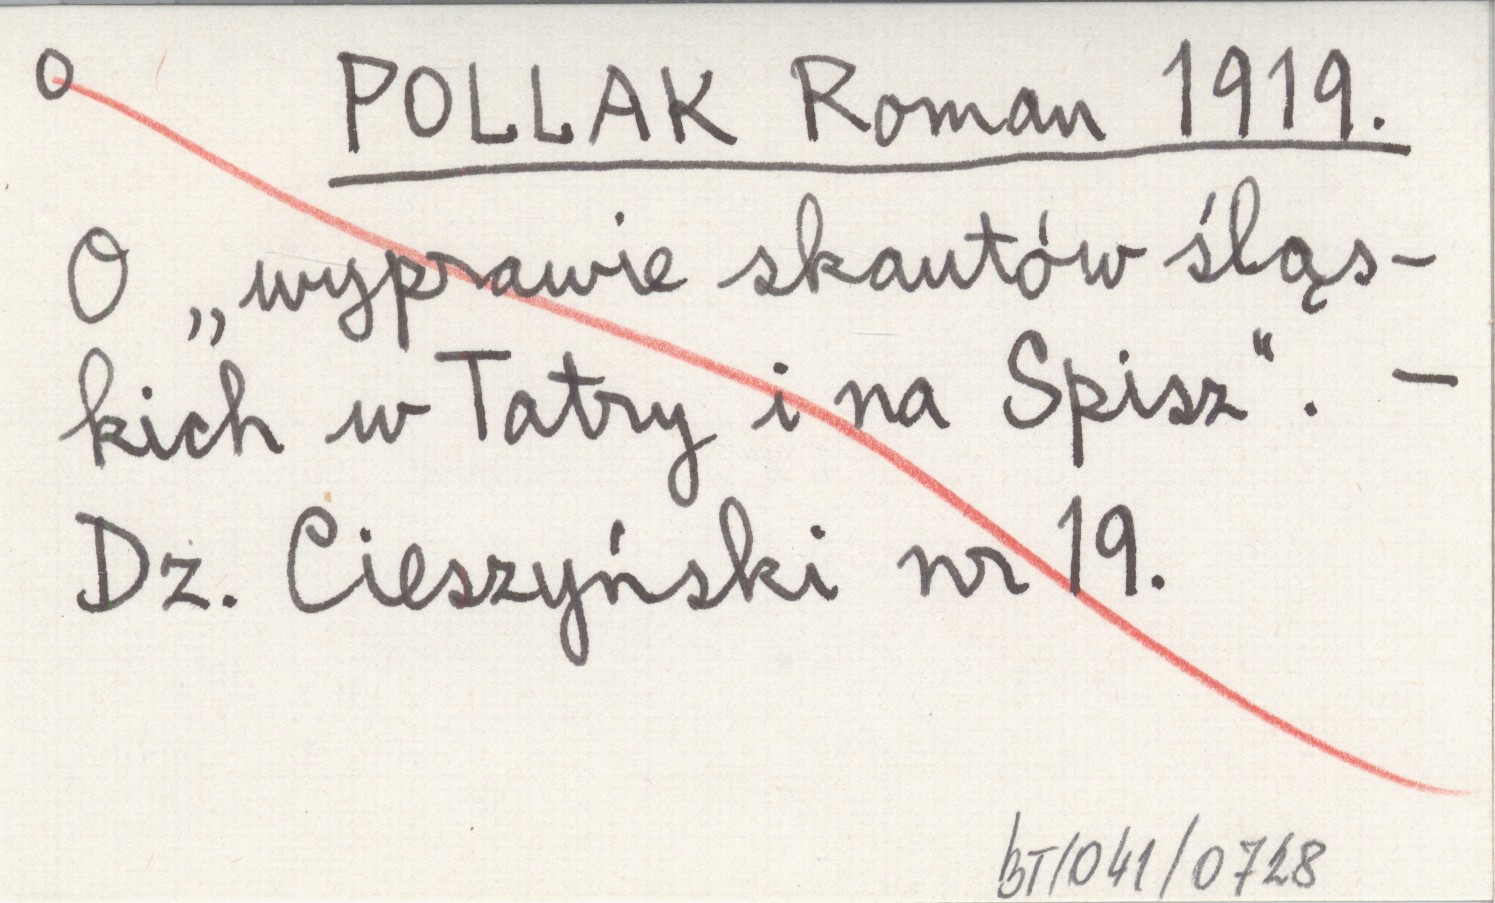 O POLLAK Roman 1919.
O „wyprawie skautów śląs-
kich w Tatry i na Spisz“. -
Dz. Cieszyński nr 19.
BT/041/0728